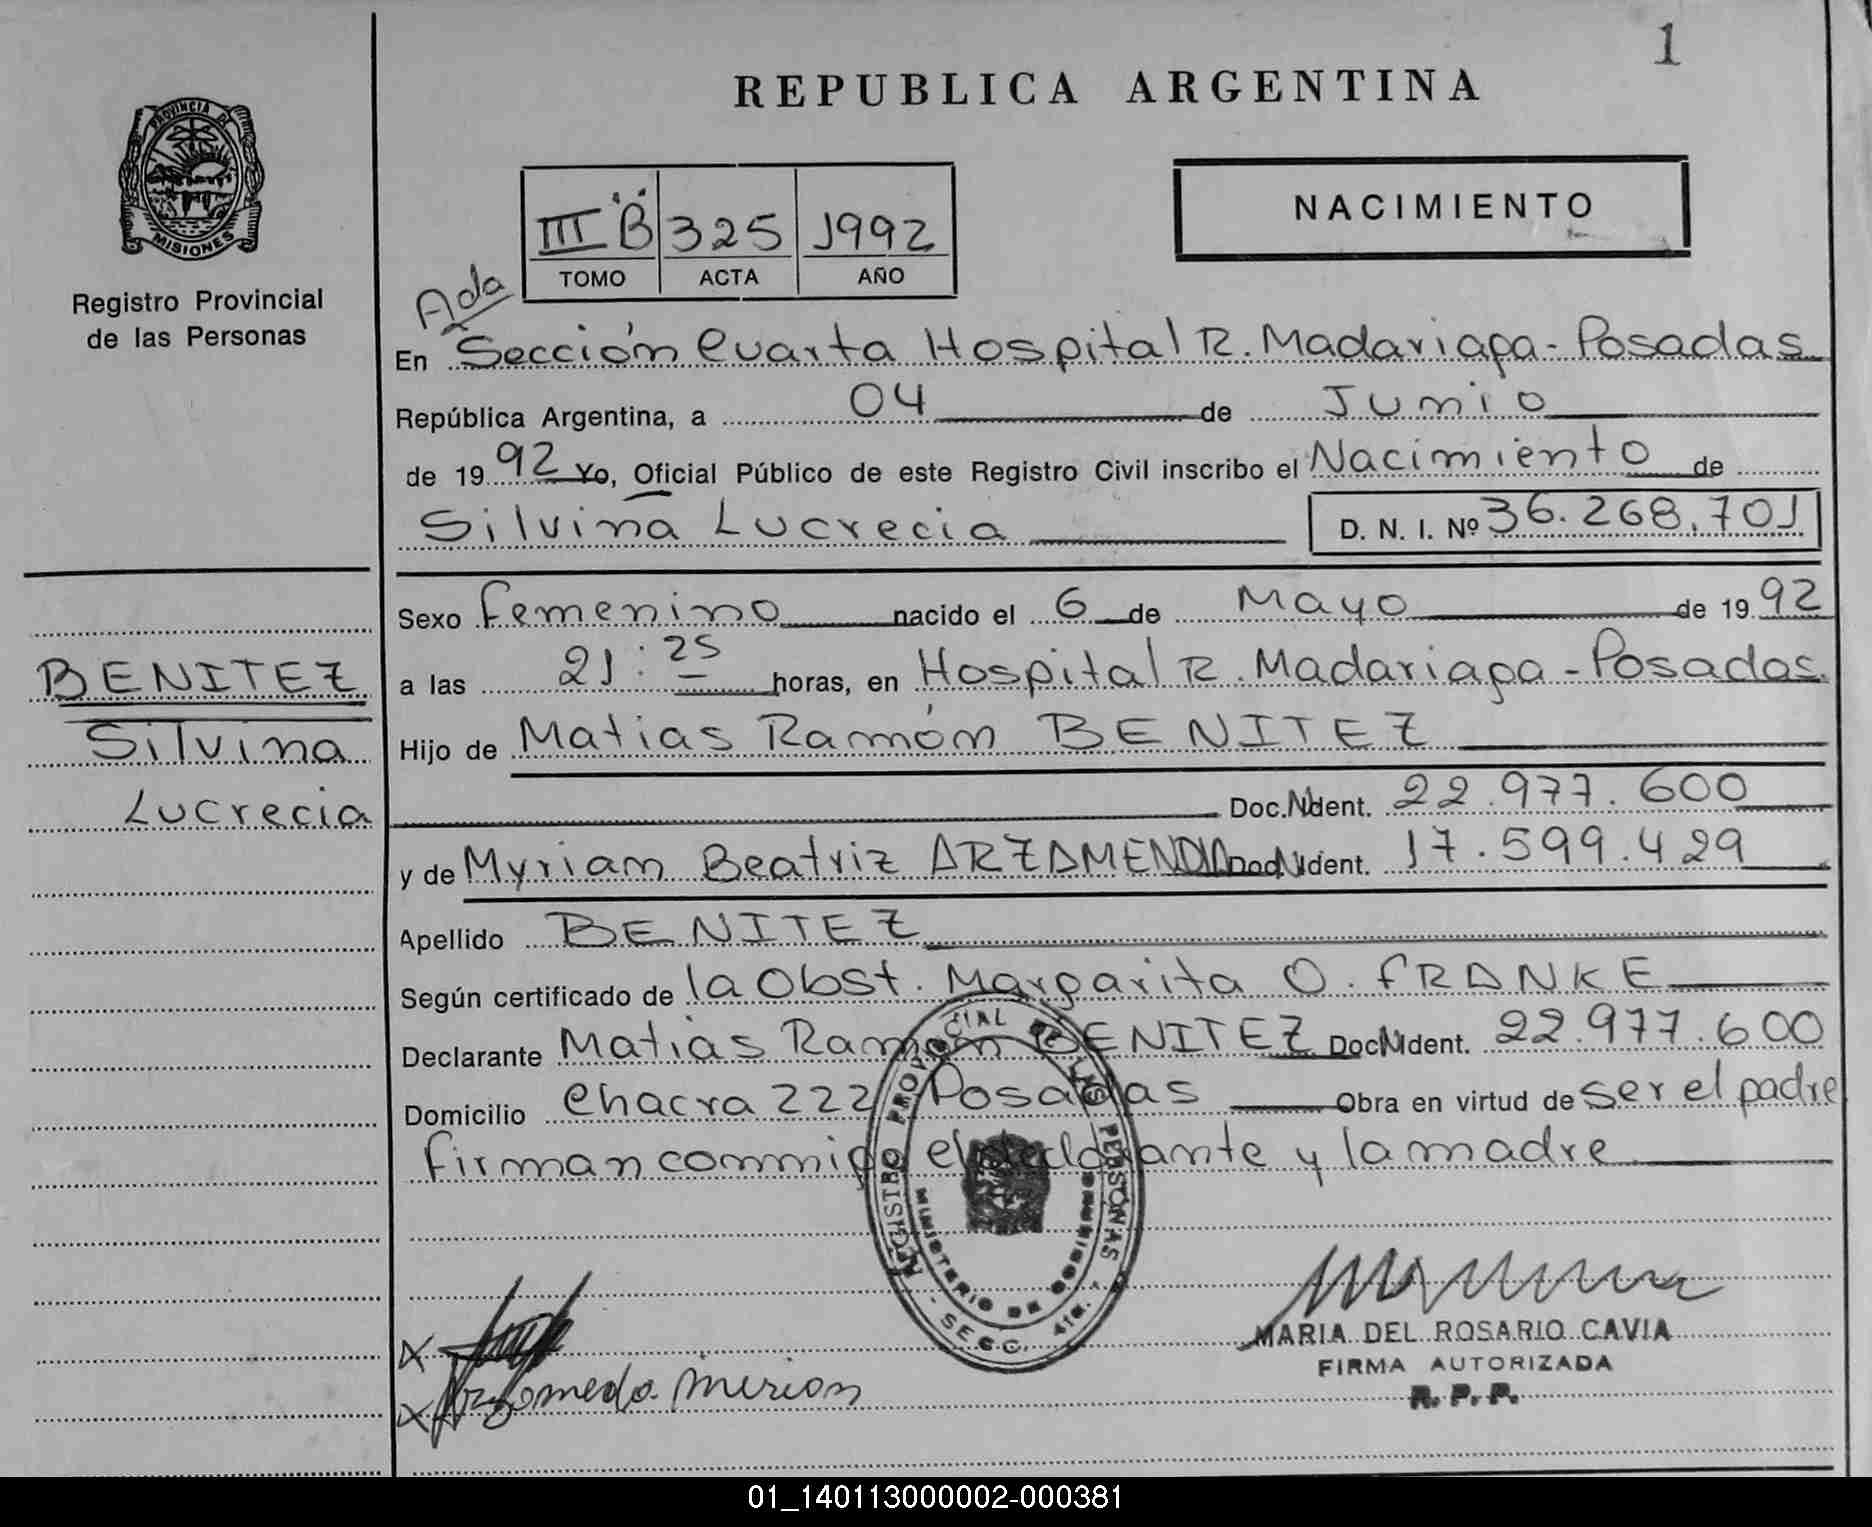 1
REPUBLICA ARGENTINA
PROVINCIA DE
MISIONES
Registro Provincial
de las Personas
III "B" 325 1992
TOMO ACTA AÑO
NACIMIENTO
Ada
En Sección Cuarta Hospital R. Madariaga - Posadas
República Argentina, a 04 de Junio
de 1992 Yo, Oficial Público de este Registro Civil inscribo el Nacimiento de
Silvina Lucrecia D. N. I. Nº 36.268.701
Sexo femenino nacido el 6 de Mayo de 1992
BENITEZ
a las 21:25 horas, en Hospital R. Madariaga - Posadas.
Silvina
Hijo de Matias Ramón BENITEZ
Lucrecia
Doc. Nident. 22.977.600
y de Myriam Beatriz ARZAMENDIA Doc. Nident. 17.599.429
Apellido BENITEZ
Según certificado de la Obst. Margarita O. FRANKE
Declarante Matias Ramón BENITEZ Doc. Nident. 22.977.600
Domicilio Chacra 222 Posadas Obra en virtud de ser el padre
firman conmigo el declarante y la madre
REGISTRO PROVINCIAL DE LAS PERSONAS
MINISTERIO DE GOBIERNO
- SECC. 4ta. -
MARIA DEL ROSARIO CAVIA
FIRMA AUTORIZADA
R. P. P.
01_140113000002-000381